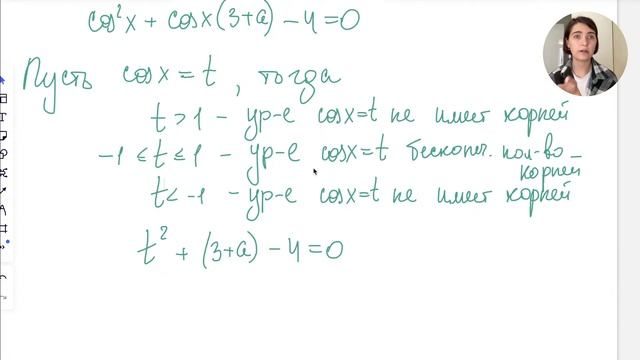 cos²x + cosx(3+a) – 4 = 0
Пусть cosx = t, тогда
t > 1 – ур-е cosx=t не имеет корней
-1 ≤ t ≤ 1 – ур-е cosx=t бесконеч. кол-во корней
t < -1 – ур-е cosx=t не имеет корней
t² + (3+a) – 4 = 0